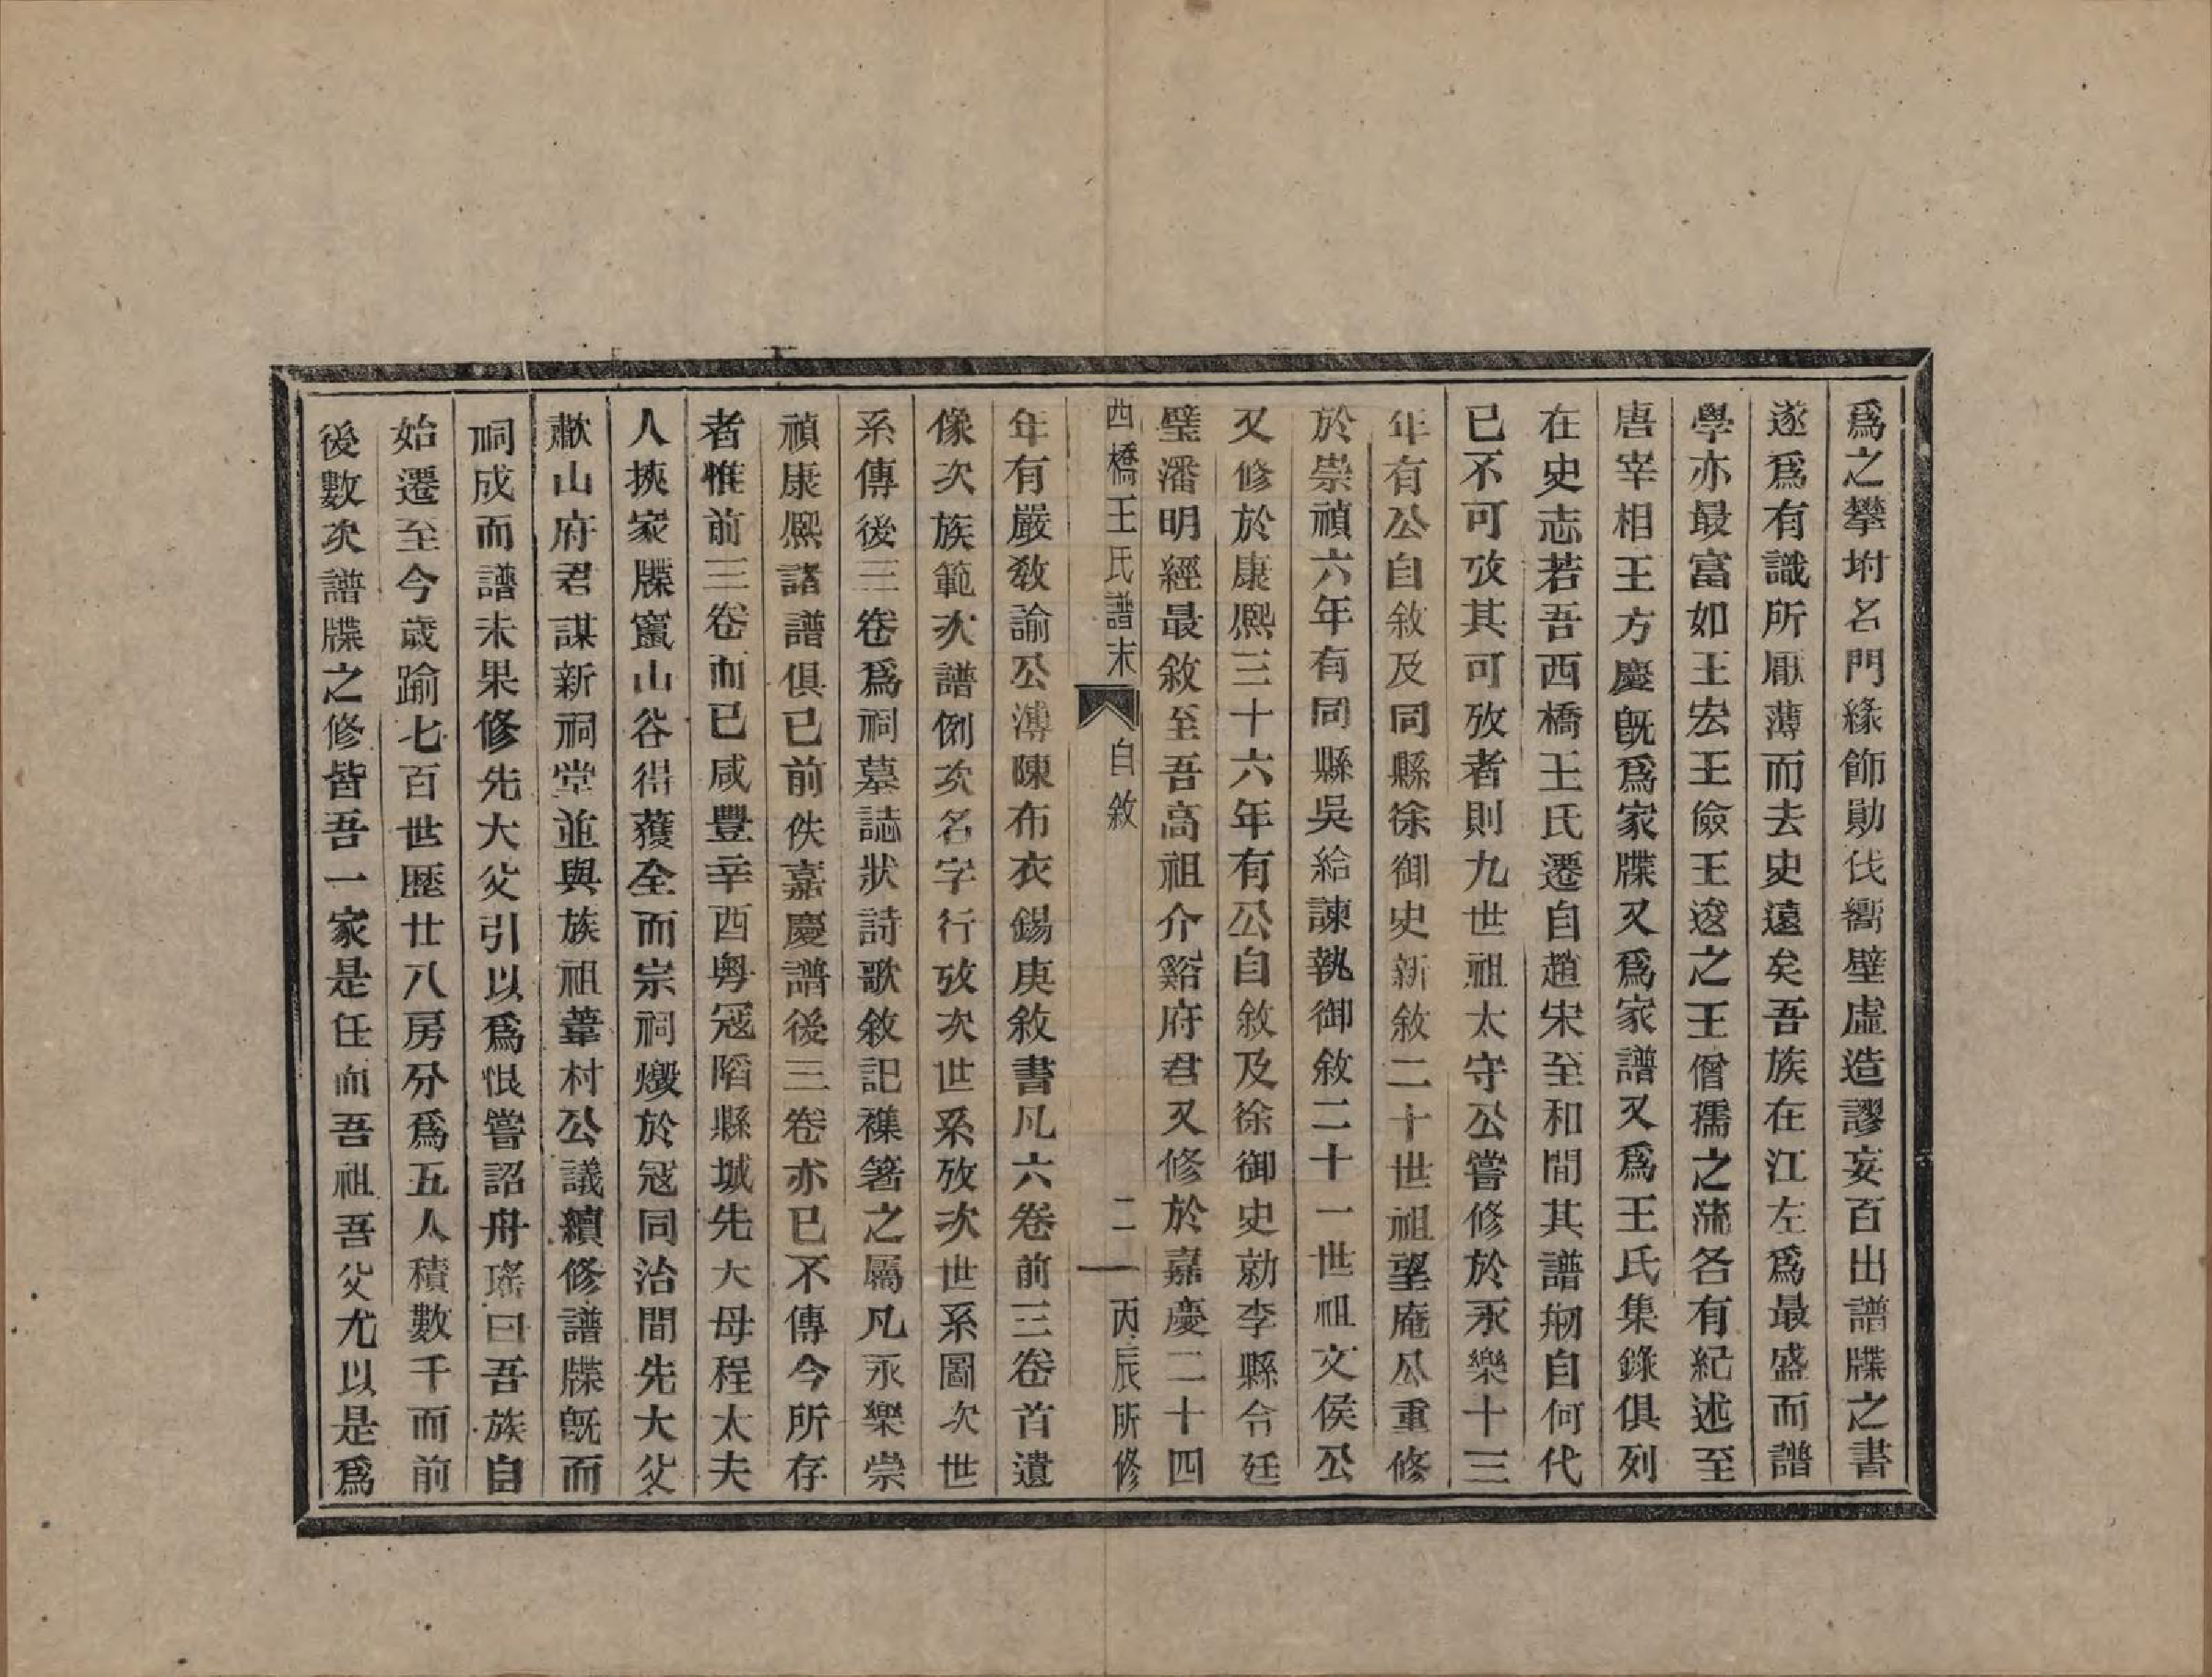 爲之攀坿名門緣飾勛伐嚮壁虛造謬妄百出譜牒之書
遂爲有識所厭薄而去史遠矣吾族在江左爲最盛而譜
學亦最富如王宏王儉王逡之王僧孺之流各有紀述至
唐宰相王方慶旣爲家牒又爲家譜又爲王氏集錄俱列
在史志若吾西橋王氏遷自趙宋至和間其譜剏自何代
已不可攷其可攷者則九世祖太守公嘗修於永樂十三
年有公自敘及同縣徐御史新敘二十世祖望庵公重修
於崇禎六年有同縣吳給諫執御敘二十一世祖文侯公
又修於康熙三十六年有公自敘及徐御史勍李縣令廷
璧潘明經最敘至吾高祖介谿府君又修於嘉慶二十四
西橋王氏譜末 自敘 二 丙辰所修
年有嚴敎諭公溥陳布衣錫庚敘書凡六卷前三卷首遺
像次族範次譜例次名字行攷次世系攷次世系圖次世
系傳後三卷爲祠墓誌狀詩歌敘記襍箸之屬凡永樂崇
禎康熙諸譜俱已前佚嘉慶譜後三卷亦已不傳今所存
者惟前三卷而已咸豐辛酉粵寇陷縣城先大母程太夫
人挾家牒竄山谷得獲全而宗祠燬於寇同治間先大父
歗山府君謀新祠堂並與族祖葦村公議續修譜牒旣而
祠成而譜未果修先大父引以爲恨嘗詔舟瑤曰吾族自
始遷至今歲踰七百世歷廿八房分爲五人積數千而前
後數次譜牒之修皆吾一家是任而吾祖吾父尤以是爲